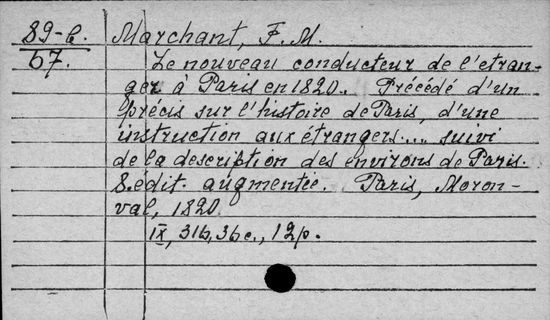 89-b. Marchant, F. M.
67. Le nouveau conducteur de l'etran-
ger à Paris en 1820. Précédé d'un
précis sur l'histoire de Paris, d'une
instruction aux étrangers.... suivi
de la description des environs de Paris.
8. édit. augmentée. Paris, Moron-
val, 1820
IX, 316, 36 c., 12 p.